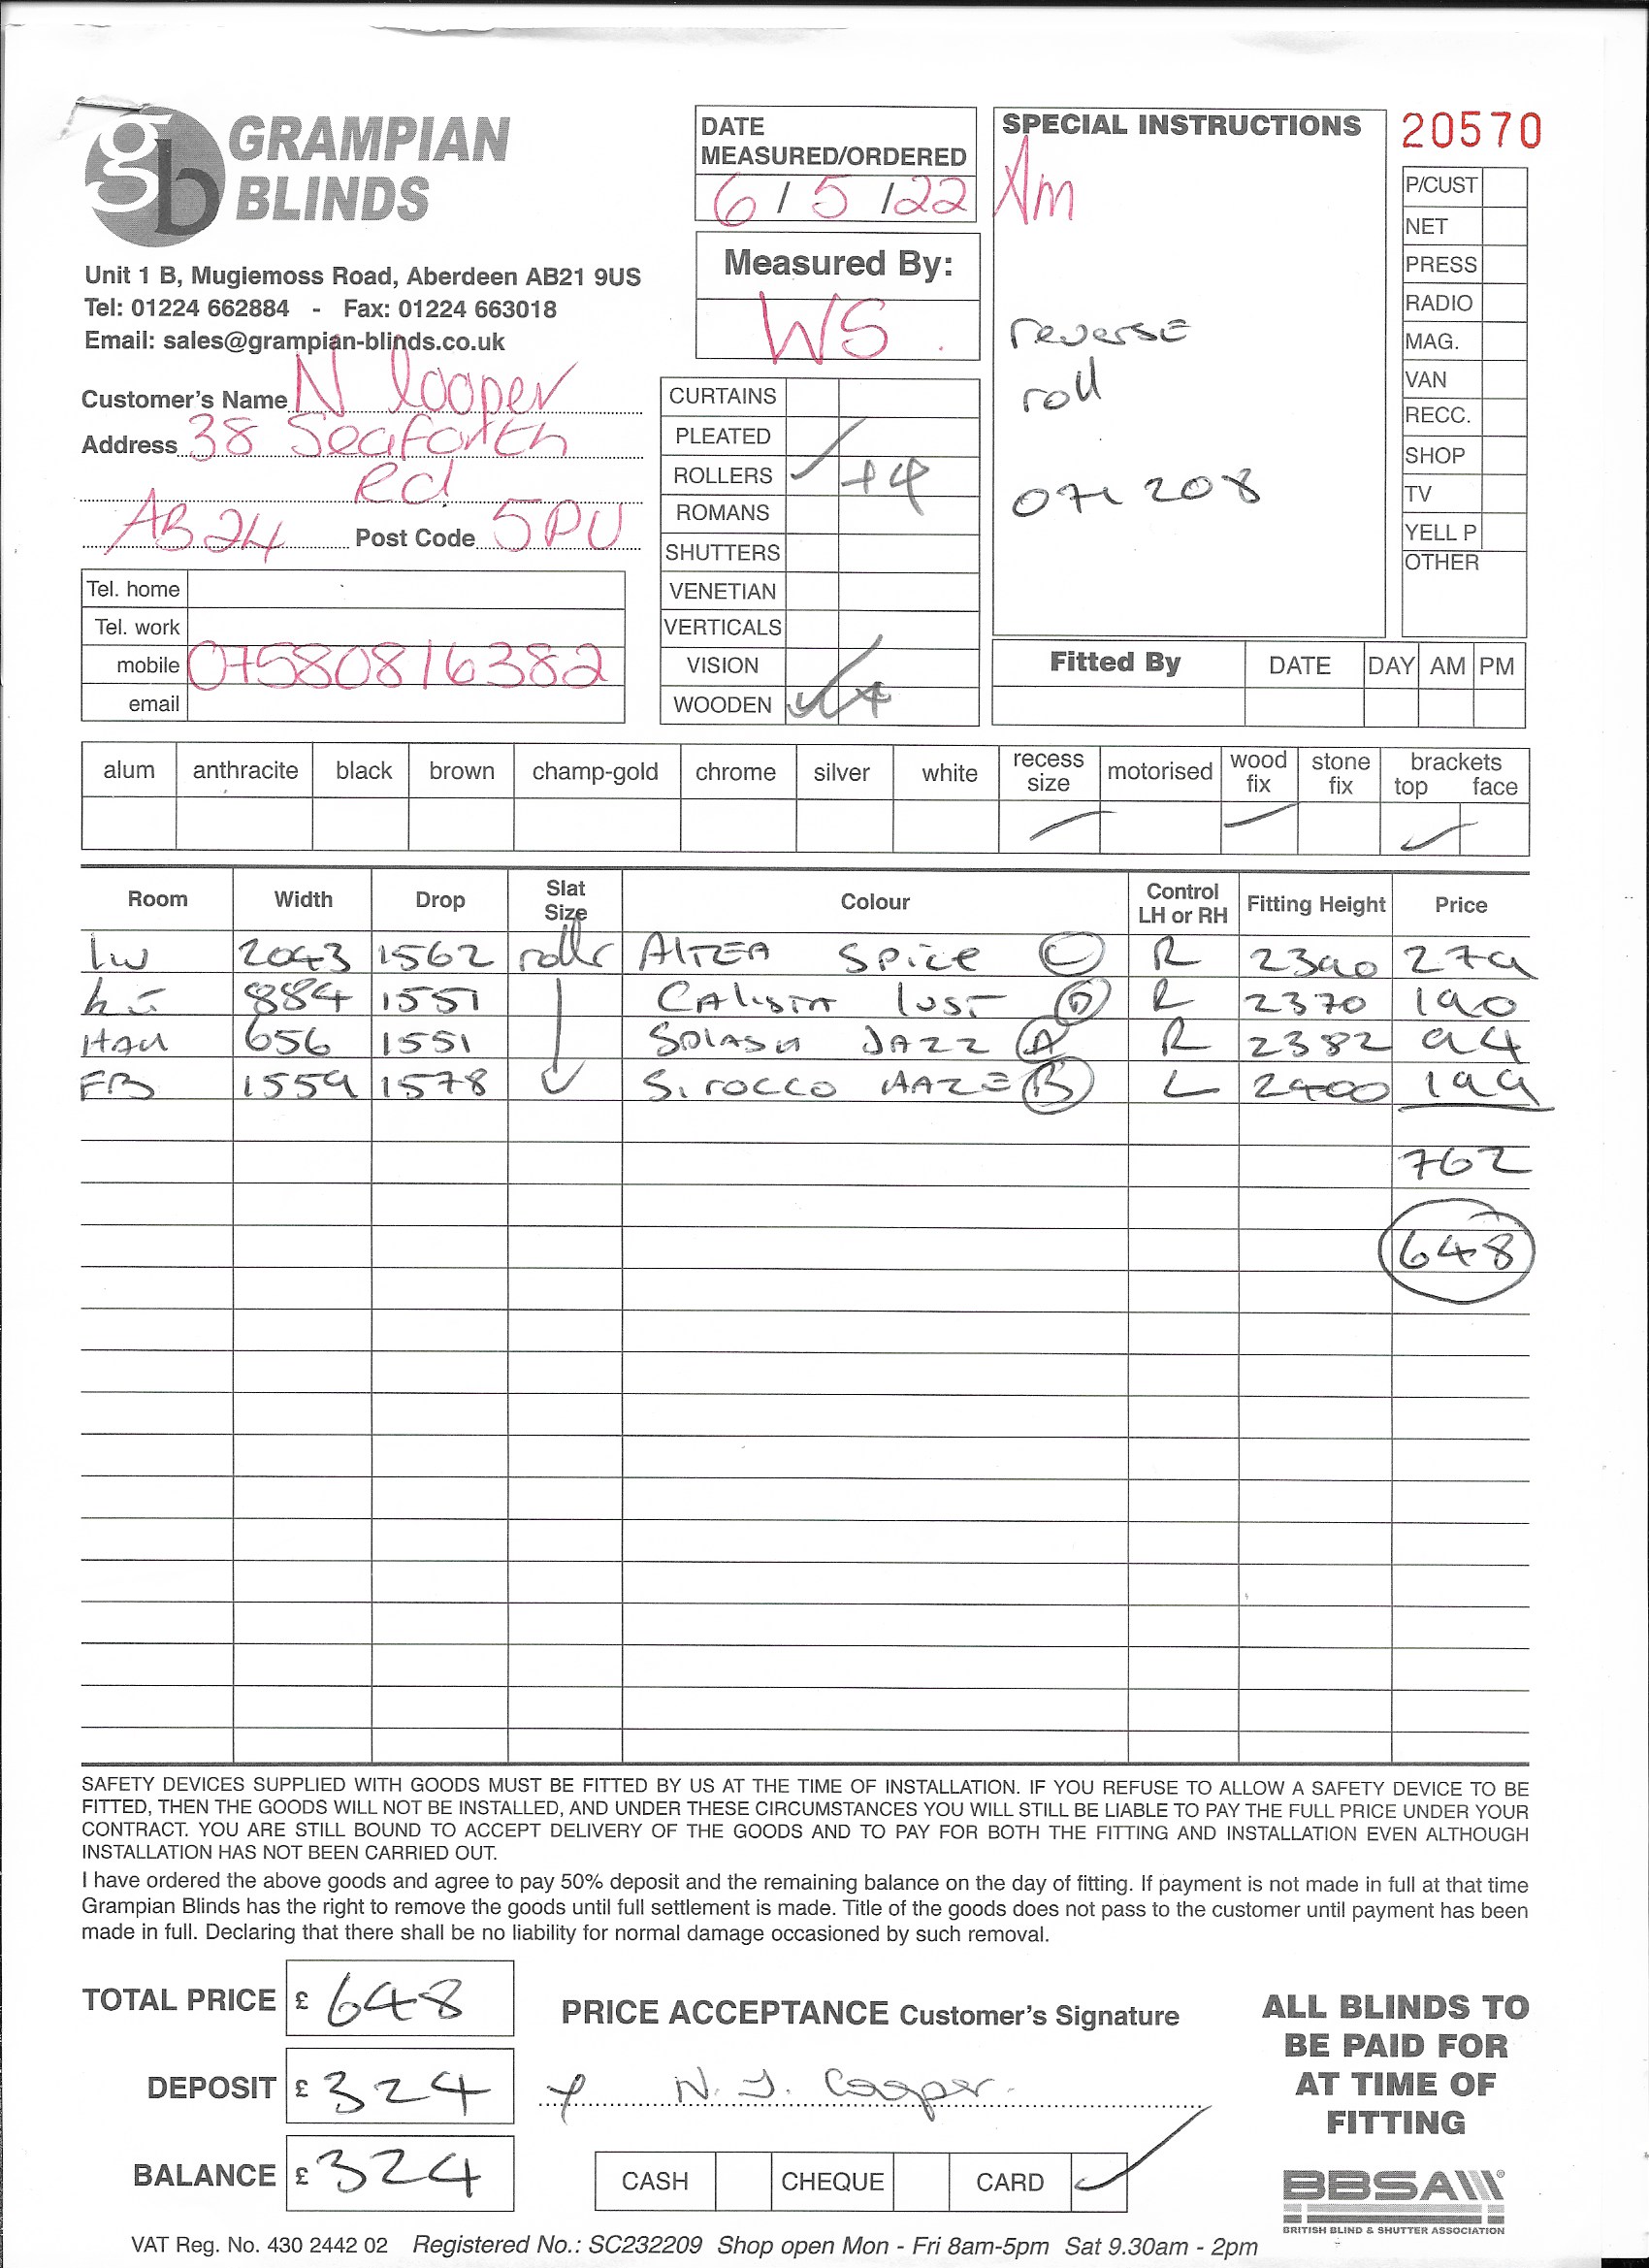 GRAMPIAN
BLINDS
Unit 1 B, Mugiemoss Road, Aberdeen AB21 9US
Tel: 01224 662884 - Fax: 01224 663018
Email: sales@grampian-blinds.co.uk
Customer's Name N Cooper
Address 38 Seaforth
Rd
AB24 Post Code 5PU
Tel. home
Tel. work
mobile 07580816382
email
DATE
MEASURED/ORDERED
6 / 5 /22
Measured By:
WS
CURTAINS
PLEATED
ROLLERS +4
ROMANS
SHUTTERS
VENETIAN
VERTICALS
VISION
WOODEN
SPECIAL INSTRUCTIONS
Am
reverse
roll
208
20570
P/CUST
NET
PRESS
RADIO
MAG.
VAN
RECC.
SHOP
TV
YELL P
OTHER
Fitted By DATE DAY AM PM
alum anthracite black brown champ-gold chrome silver white recess size motorised wood fix stone fix brackets top face
Room Width Drop Slat Size Colour Control LH or RH Fitting Height Price
LW 2043 1562 rollr AlTEA SPice C R 2390 279
884 1551 CAlista lust D R 2370 190
HAll 656 1551 SPlASH JAZZ A R 2382 94
FB 1559 1578 SiroCCO HAZE B L 2400 199
762
648
SAFETY DEVICES SUPPLIED WITH GOODS MUST BE FITTED BY US AT THE TIME OF INSTALLATION. IF YOU REFUSE TO ALLOW A SAFETY DEVICE TO BE
FITTED, THEN THE GOODS WILL NOT BE INSTALLED, AND UNDER THESE CIRCUMSTANCES YOU WILL STILL BE LIABLE TO PAY THE FULL PRICE UNDER YOUR
CONTRACT. YOU ARE STILL BOUND TO ACCEPT DELIVERY OF THE GOODS AND TO PAY FOR BOTH THE FITTING AND INSTALLATION EVEN ALTHOUGH
INSTALLATION HAS NOT BEEN CARRIED OUT.
I have ordered the above goods and agree to pay 50% deposit and the remaining balance on the day of fitting. If payment is not made in full at that time
Grampian Blinds has the right to remove the goods until full settlement is made. Title of the goods does not pass to the customer until payment has been
made in full. Declaring that there shall be no liability for normal damage occasioned by such removal.
TOTAL PRICE £ 648
DEPOSIT £ 324
BALANCE £ 324
PRICE ACCEPTANCE Customer's Signature
N. J. Cooper.
CASH CHEQUE CARD
ALL BLINDS TO
BE PAID FOR
AT TIME OF
FITTING
BBSA
BRITISH BLIND & SHUTTER ASSOCIATION
VAT Reg. No. 430 2442 02 Registered No.: SC232209 Shop open Mon - Fri 8am-5pm Sat 9.30am - 2pm